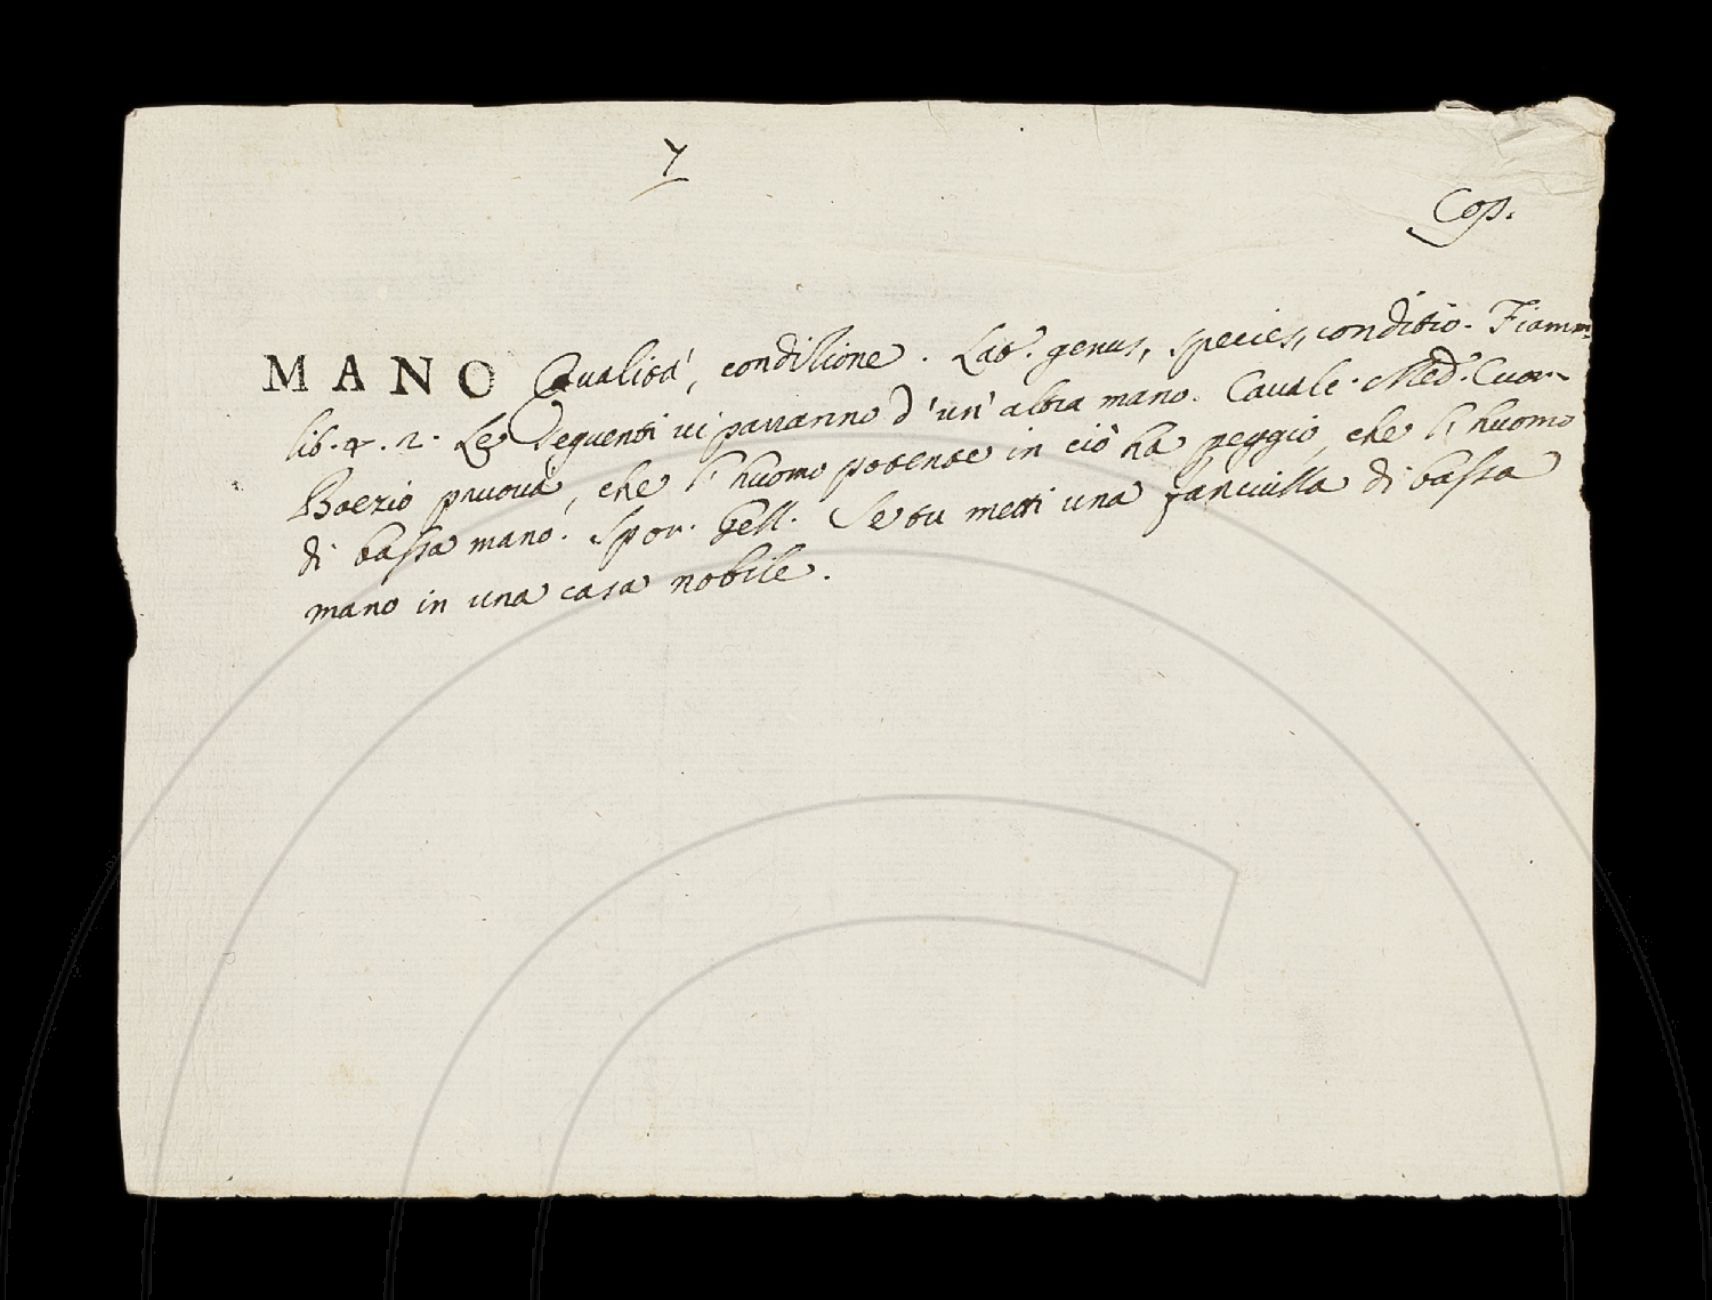 7
Cop.
MANO Qualità, condizione. Lat. genus, species, conditio. Fiamm.
lib. 4. 2. Le seguenti vi parranno d'un'altra mano. Cavalc. Med. Cuor.
Boezio pruova, che l'huomo potente in ciò ha peggio, che l'huomo
di bassa mano. Spor. Gell. Se tu metti una fanciulla di bassa
mano in una casa nobile.